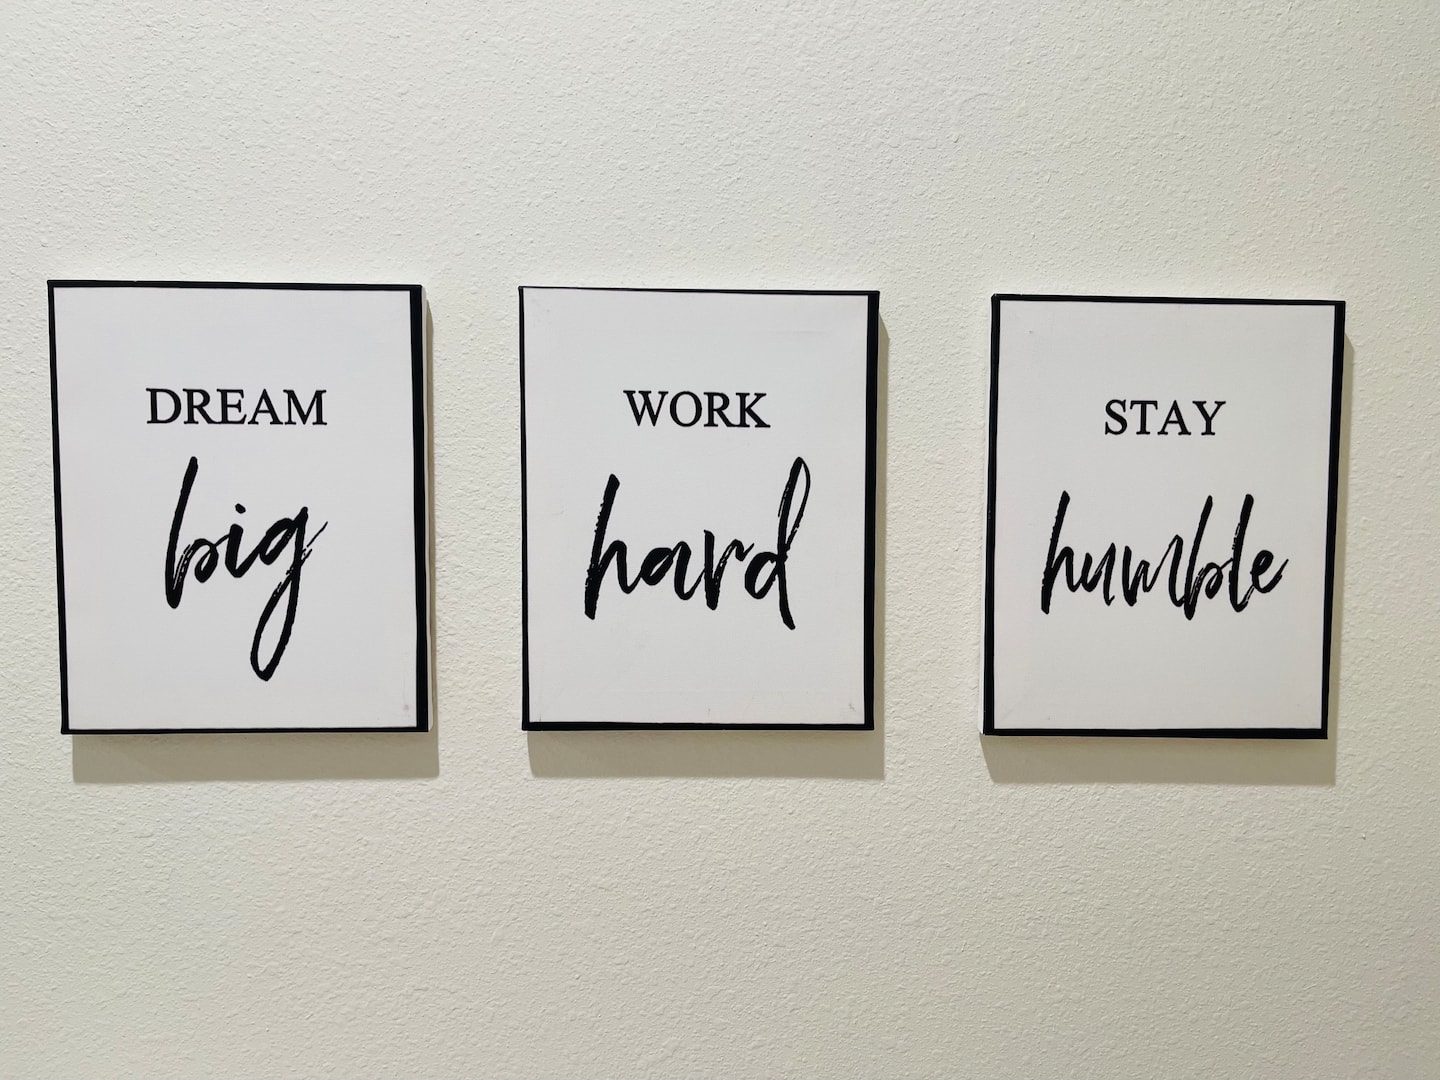 DREAM
big
WORK
hard
STAY
humble